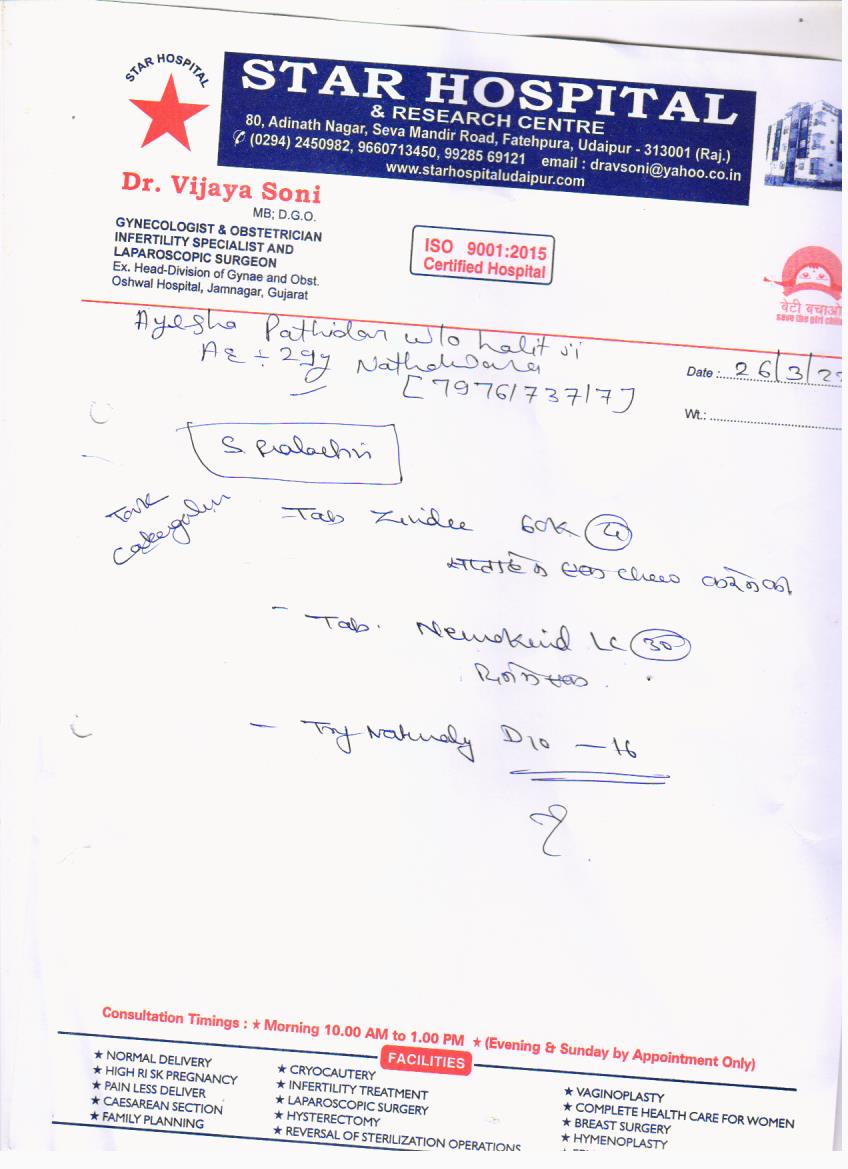 STAR HOSPITAL
STAR HOSPITAL
& RESEARCH CENTRE
80, Adinath Nagar, Seva Mandir Road, Fatehpura, Udaipur - 313001 (Raj.)
✆ (0294) 2450982, 9660713450, 99285 69121 email : dravsoni@yahoo.co.in
www.starhospitaludaipur.com
Dr. Vijaya Soni
MB; D.G.O.
GYNECOLOGIST & OBSTETRICIAN
INFERTILITY SPECIALIST AND
LAPAROSCOPIC SURGEON
Ex. Head-Division of Gynae and Obst.
Oshwal Hospital, Jamnagar, Gujarat
ISO 9001:2015
Certified Hospital
बेटी बचाओ
save the girl child
Ayesha Pathidar w/o Lalit ji
29y Nathdwara
[7976173717]
Date : 26/3/22
Wt.:
S. Prolactin
Tab 60K
Tab. LC 30
- Try Naturaly D10 - 16
Consultation Timings : ★ Morning 10.00 AM to 1.00 PM ★ (Evening & Sunday by Appointment Only)
FACILITIES
★ NORMAL DELIVERY
★ HIGH RI SK PREGNANCY
★ PAIN LESS DELIVER
★ CAESAREAN SECTION
★ FAMILY PLANNING
★ CRYOCAUTERY
★ INFERTILITY TREATMENT
★ LAPAROSCOPIC SURGERY
★ HYSTERECTOMY
★ REVERSAL OF STERILIZATION OPERATIONS
★ VAGINOPLASTY
★ COMPLETE HEALTH CARE FOR WOMEN
★ BREAST SURGERY
★ HYMENOPLASTY